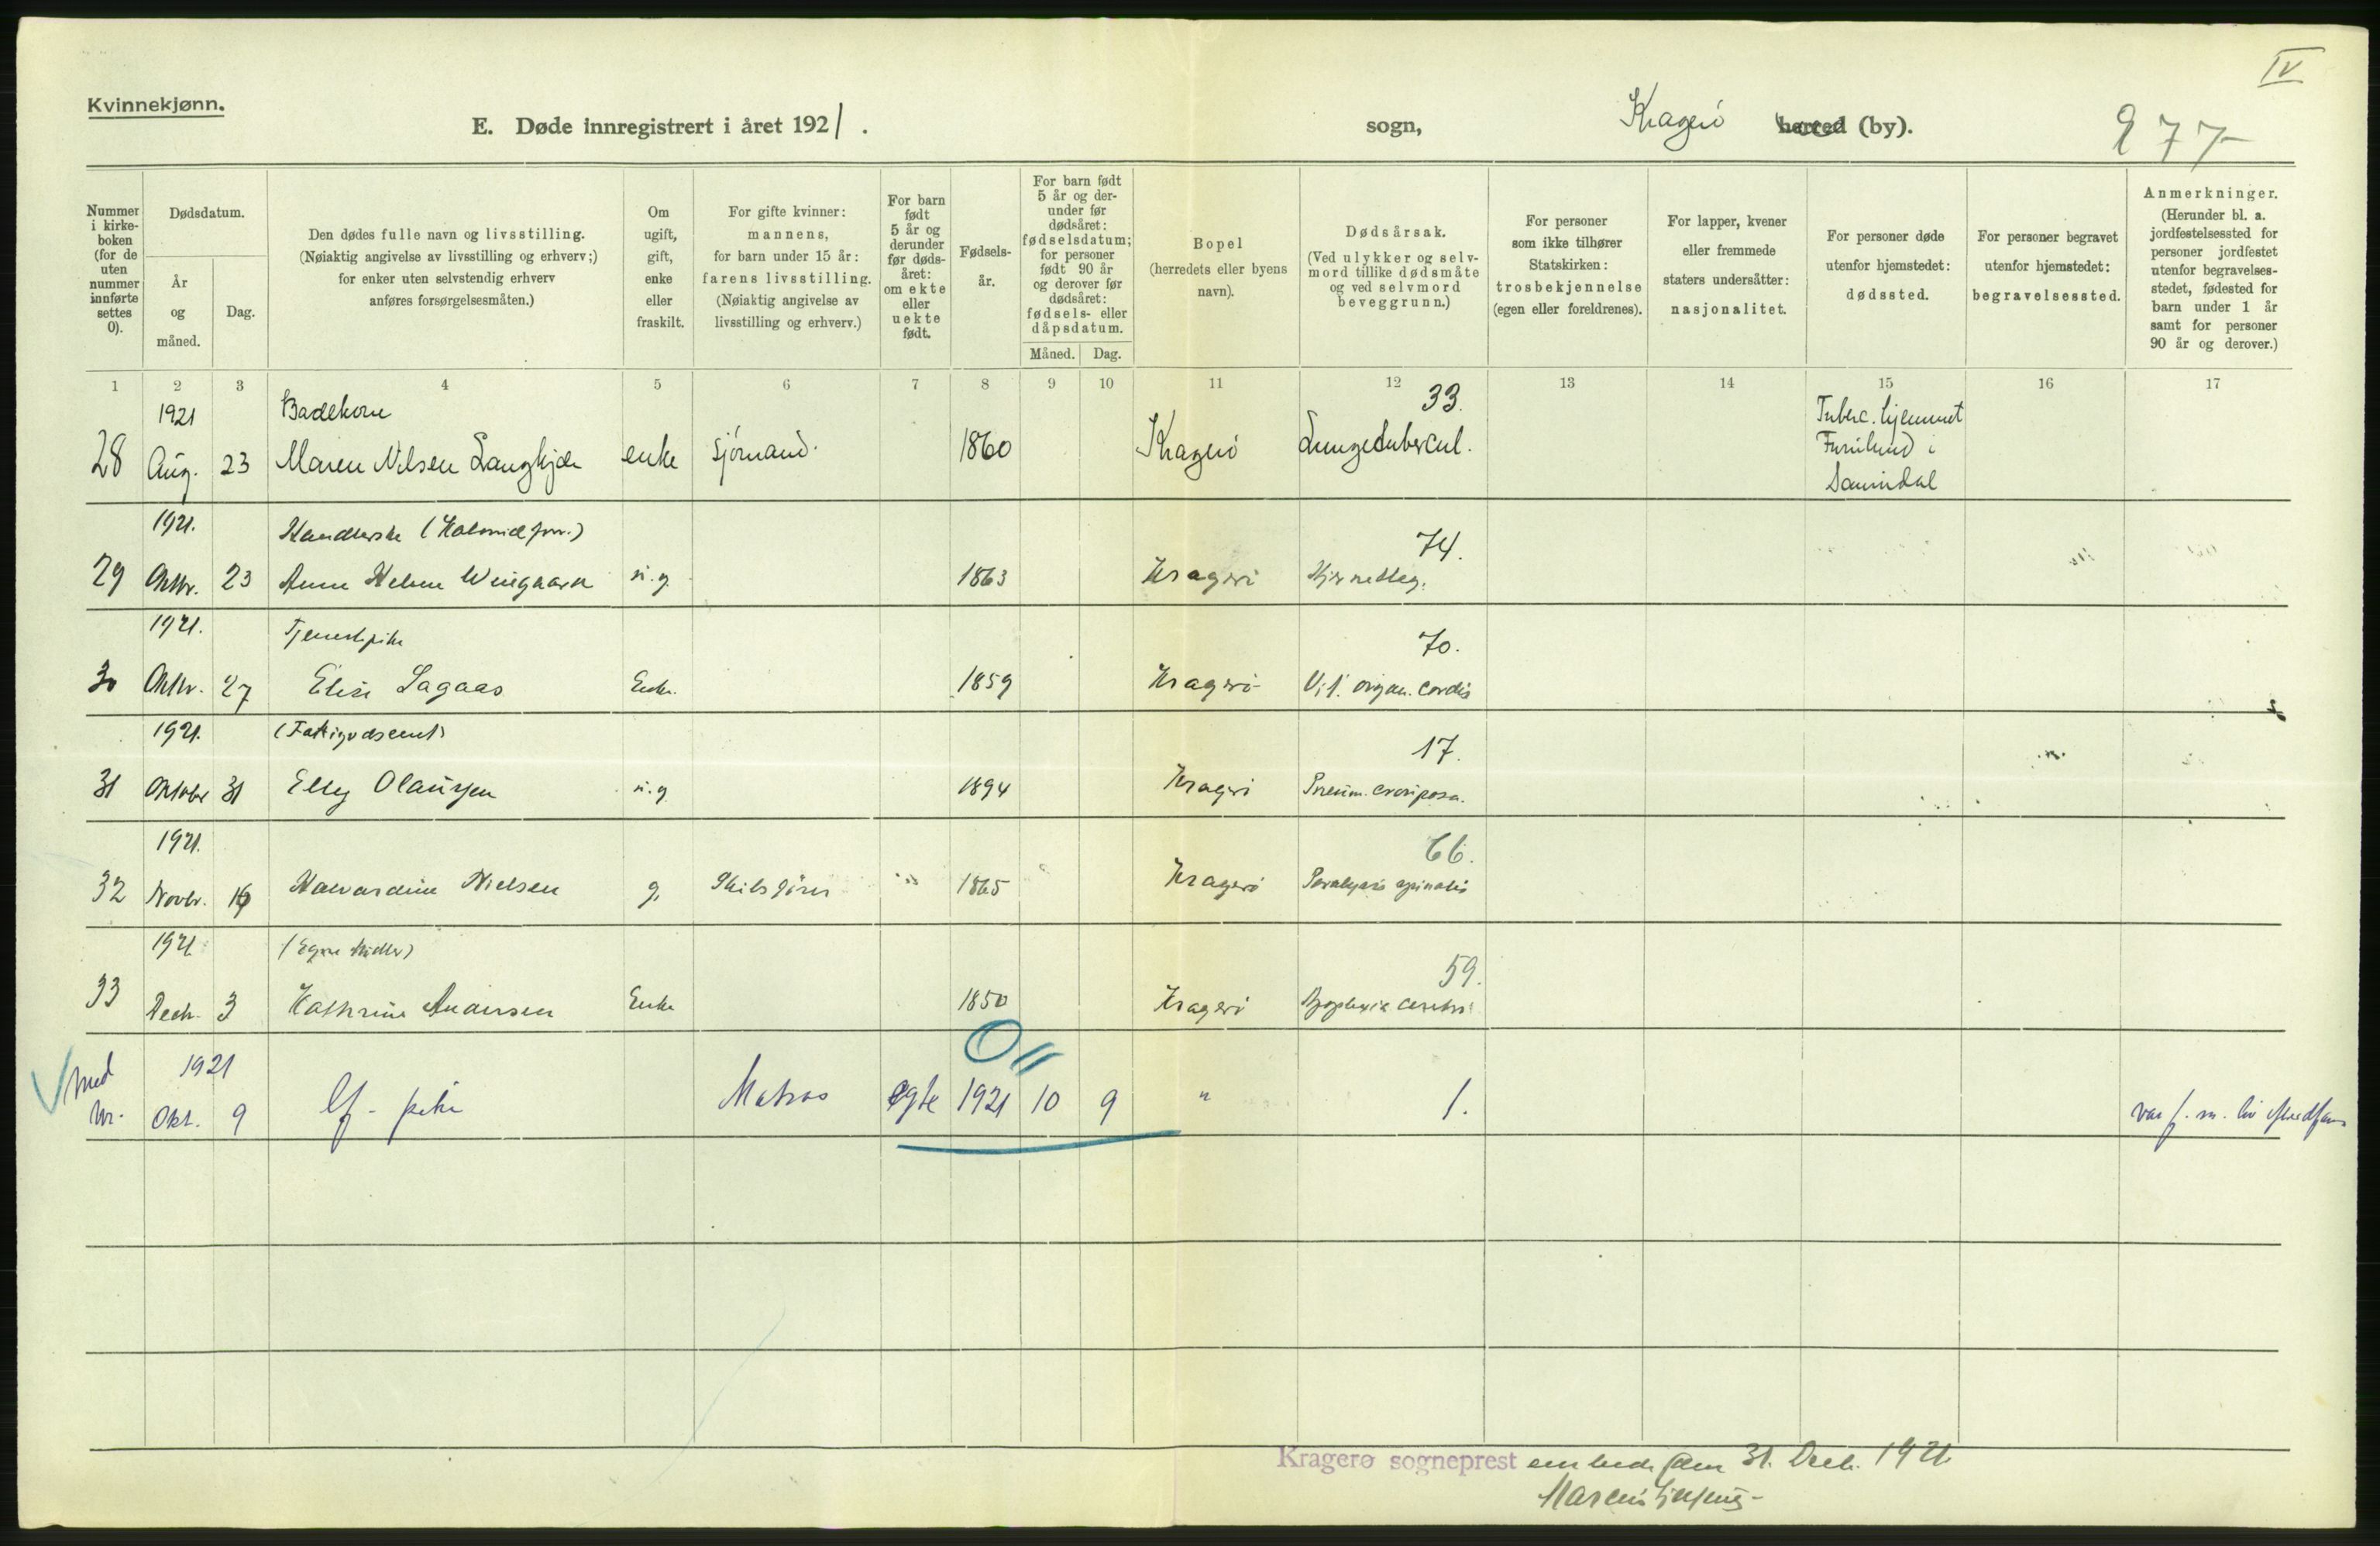 IV
Kvinnekjønn.
E. Døde innregistrert i året 1921.
sogn, Kragerö herred (by).
277
Nummer i kirkeboken (for de uten nummer innførte settes 0).
Dødsdatum.
År og måned.
Dag.
Den dødes fulle navn og livsstilling.
(Nøiaktig angivelse av livsstilling og erhverv;)
for enker uten selvstendig erhverv
anføres forsørgelsesmåten.)
Om ugift, gift, enke eller fraskilt.
For gifte kvinner: mannens, for barn under 15 år: farens livsstilling. (Nøiaktig angivelse av livsstilling og erhverv.)
For barn født 5 år og derunder før dødsåret: om ekte eller uekte født.
Fødselsår.
For barn født 5 år og derunder før dødsåret: fødselsdatum; for personer født 90 år og derover før dødsåret: fødsels- eller dåpsdatum.
Måned. Dag.
Bopel (herredets eller byens navn).
Dødsårsak. (Ved ulykker og selvmord tillike dødsmåte og ved selvmord beveggrunn.)
For personer som ikke tilhører Statskirken: trosbekjennelse (egen eller foreldrenes).
For lapper, kvener eller fremmede staters undersåtter: nasjonalitet.
For personer døde utenfor hjemstedet: dødssted.
For personer begravet utenfor hjemstedet: begravelsessted.
Anmerkninger. (Herunder bl. a. jordfestelsessted for personer jordfestet utenfor begravelsesstedet, fødested for barn under 1 år samt for personer 90 år og derover.)
1 2 3 4 5 6 7 8 9 10 11 12 13 14 15 16 17
1921 Badekone 33. Tuberc. hjemmet
28 Aug. 23 Maren Nilsen Langkjær enke sjömand. 1860 Kragerö Lungetubercul. Furulund i
Sannidal
1921. Handlerske (Kolonial forr.) 74.
29 Oktbr. 23 Anna Helene Wiingaard u.g. 1863 Kragerö Hjerneslag.
1921. Tjenestepike 70.
30 Oktbr. 27 Elise Lagaas Enke. 1859 Kragerö Vit. organ. cordis
1921. (Fattigvæsenet) 17.
31 Oktober 31 Elly Olaussen u.g. 1894 Kragerö Pneum. crouposa.
1921. 66.
32 Novbr. 16 Halvardine Nielsen g. Skibsförer 1865 Kragerö Paralysis spinalis
1921 (Egne Midler) 59.
33 Decb. 3 Kathrine Andersen Enke 1850 Kragerö Apoplexia cerebri
0 "
Med 1921
nr. Okt. 9 lf - pike Matros egte 1921 10 9 " 1. var f. m. liv
Kragerø sogneprest embede den 31. Decb. 1921